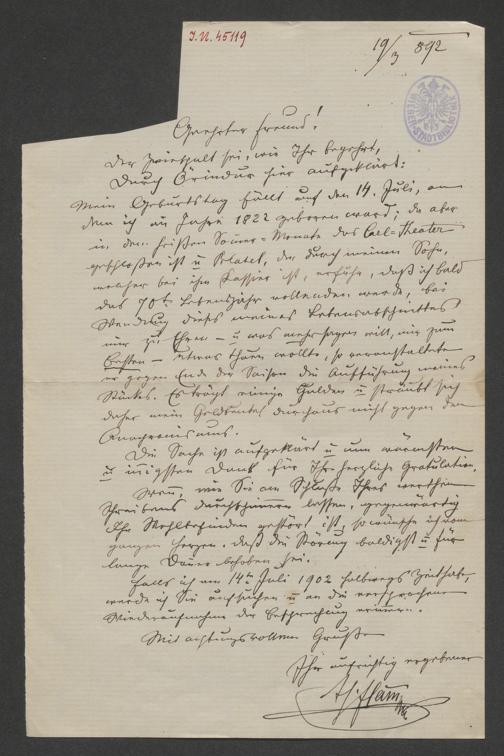 J.N. 45119
19/3 892
WIENER STADTBIBLIOTHEK
Geehrter Freund!
Der Zwiespalt sei, wie Ihr begehrt,
Durch Örindur hier aufgeklärt:
Mein Geburtstag fällt auf den 14. Juli, an
dem ich im Jahre 1822 geboren ward; da aber
in den heißen Sommer-Monate das Carl-Theater
geschlossen ist u Blasel, der durch meinen Sohn,
welcher bei ihm Kassier ist, erfuhr, daß ich bald
das 70te Lebensjahr vollenden werde, bei
Wendung dieses meines Lebensabschnittes
mir zu Ehren – u was mehr sagen will, mir zum
Besten – etwas thun wollte, so veranstaltete
er gegen Ende der Saison die Aufführung meines
Stückes. Es trägt einige Gulden u sträubt sich
daher mein Geldbeutel durchaus nicht gegen den
Anachronismus.
Die Sache ist aufgeklärt u nun wärmsten
u innigsten Dank für Ihre herzliche Gratulation.
Wenn, wie Sie am Schluße Ihres werthen
Schreibens durchschimmern lassen, gegenwärtig
Ihr Wohlbefinden gestört ist, so wünsche ich vom
ganzen Herzen, daß die Störung baldigst u für
lange Dauer behoben sei.
Falls ich am 14ten Juli 1902 halbwegs Zeit hab,
werde ich Sie aufsuchen u an die versprochene
Wiederaufnahme der Besprechung erinnern.
Mit achtungsvollem Gruße
Ihr aufrichtig ergebener